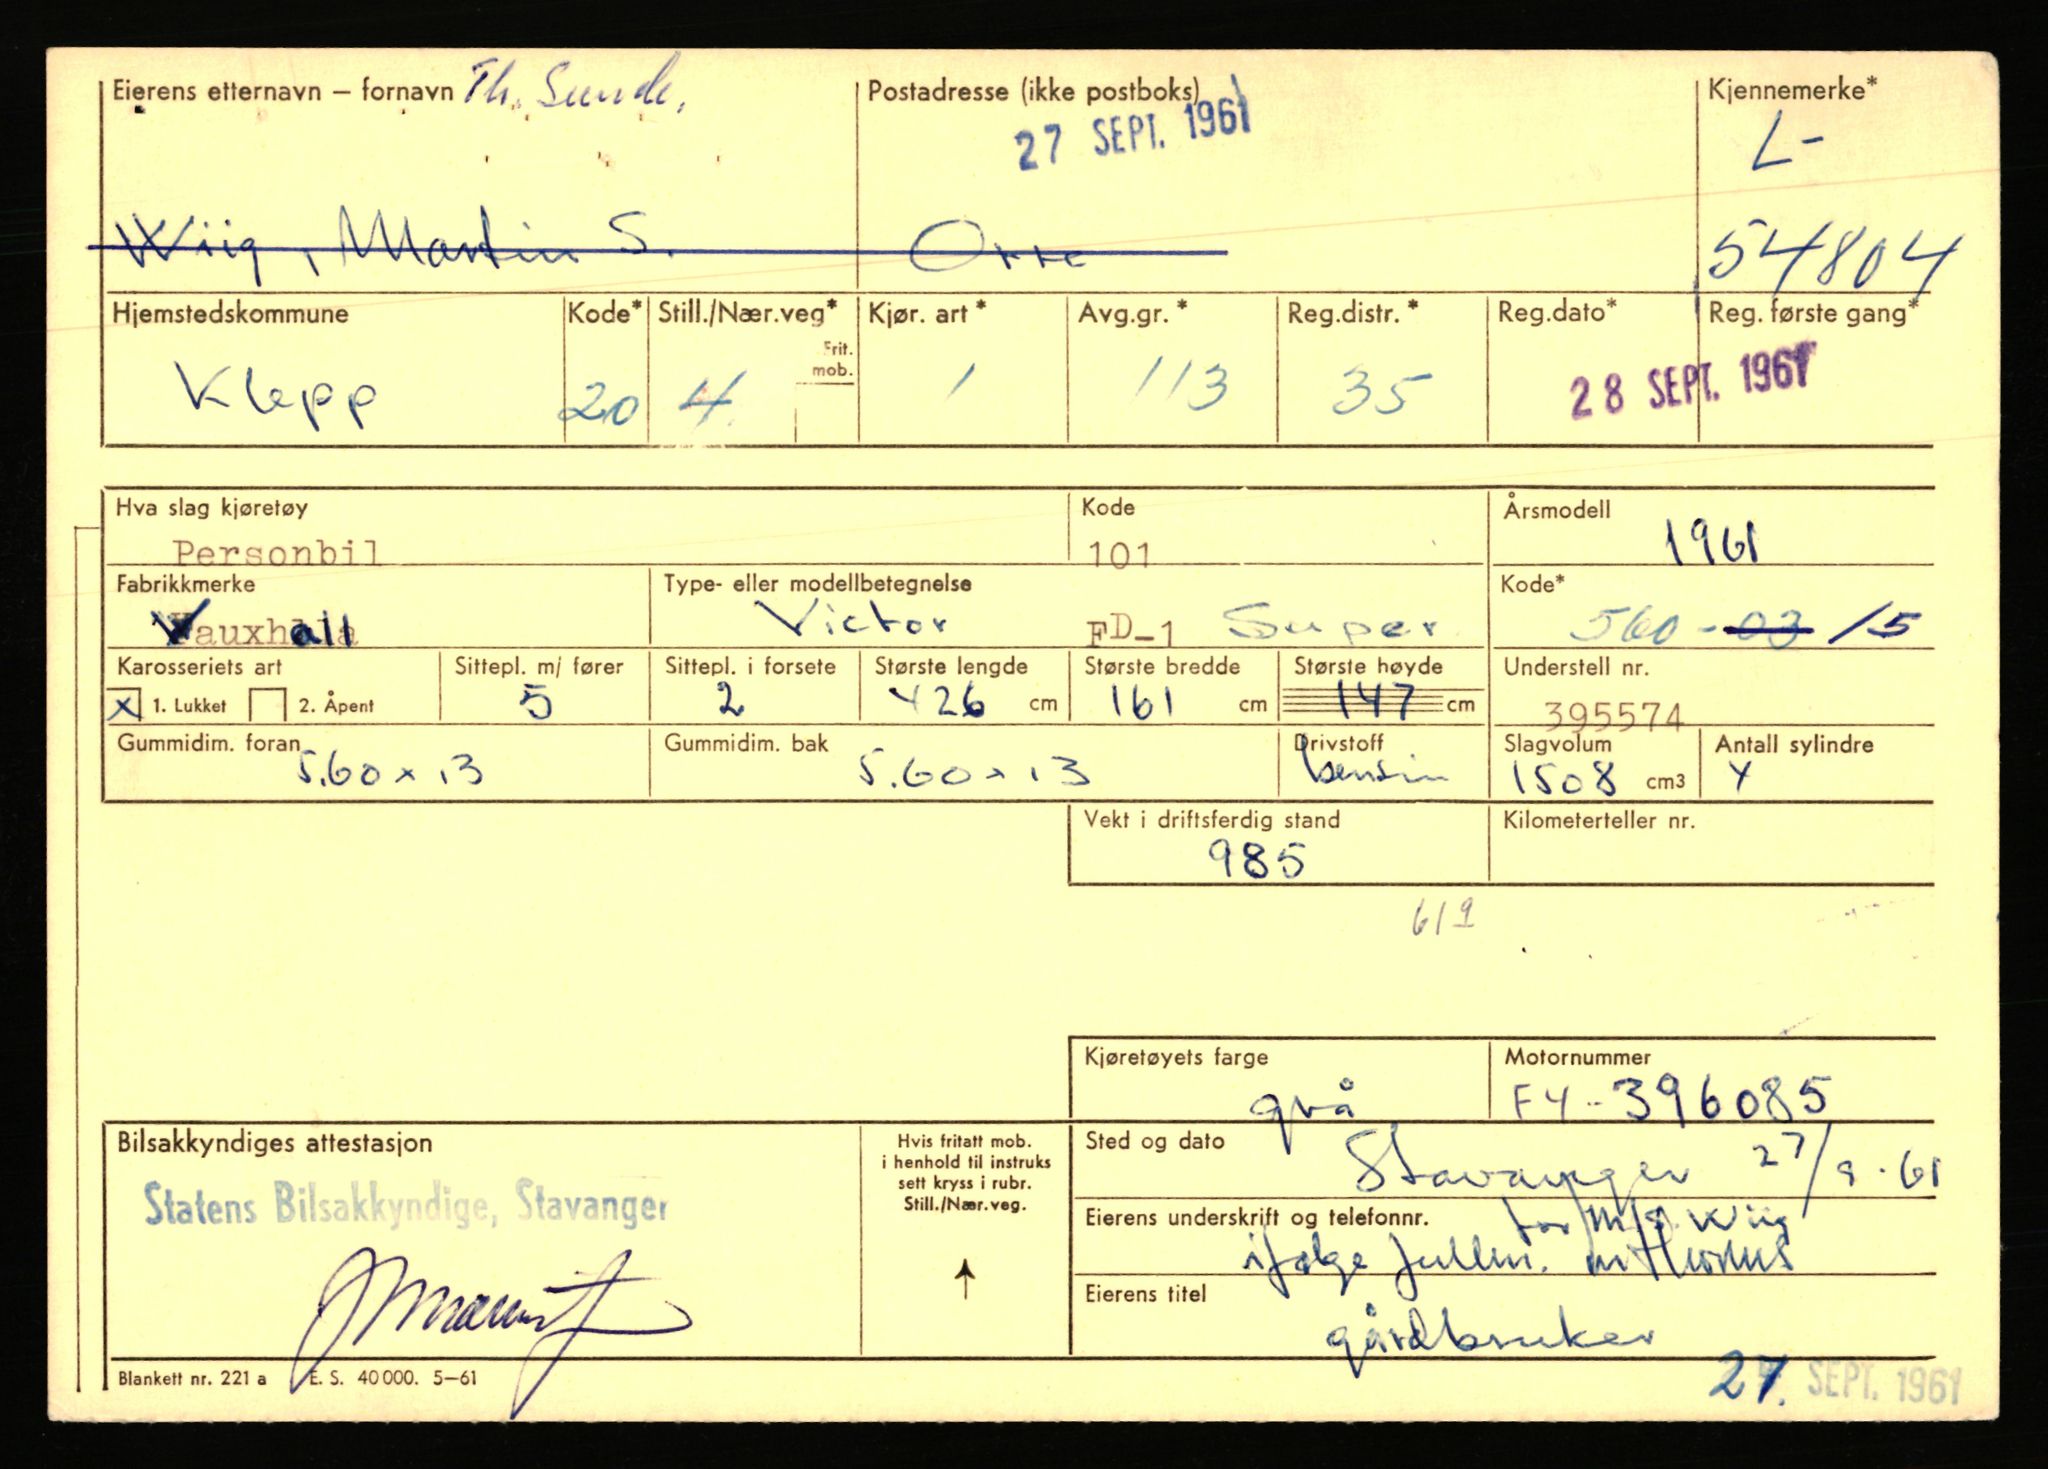 Eierens etternavn – fornavn Th. Sunde,
Postadresse (ikke postboks)
27 SEPT. 1961
Kjennemerke*
L-
Wiig, Martin S.
Orre
54804
Hjemstedskommune
Kode*
Still./Nær.veg*
Frit. mob.
Kjør. art*
Avg.gr.*
Reg.distr.*
Reg.dato*
Reg. første gang*
Klepp
20
4
1
113
35
28 SEPT. 1961
Hva slag kjøretøy
Kode
Årsmodell
Personbil
101
1961
Fabrikkmerke
Type- eller modellbetegnelse
Kode*
Vauxhall
Victor FD-1 Super
560-03/15
Karosseriets art
Sittepl. m/ fører
Sittepl. i forsete
Største lengde
Største bredde
Største høyde
Understell nr.
x 1. Lukket
2. Åpent
5
2
426 cm
161 cm
147 cm
395574
Gummidim. foran
Gummidim. bak
Drivstoff
Slagvolum
Antall sylindre
5.60 x 13
5.60 x 13
bensin
1508 cm3
4
Vekt i driftsferdig stand
Kilometerteller nr.
985
619
Kjøretøyets farge
Motornummer
grå
F4-396085
Bilsakkyndiges attestasjon
Hvis fritatt mob.
i henhold til instruks
sett kryss i rubr.
Still./Nær.veg.
Sted og dato
Stavanger 27/9.61
Statens Bilsakkyndige, Stavanger
Eierens underskrift og telefonnr.
for M.S. Wiig
ifølge fullm.
Eierens titel
gårdbruker
Blankett nr. 221 a
E. S. 40 000. 5–61
27. SEPT. 1961